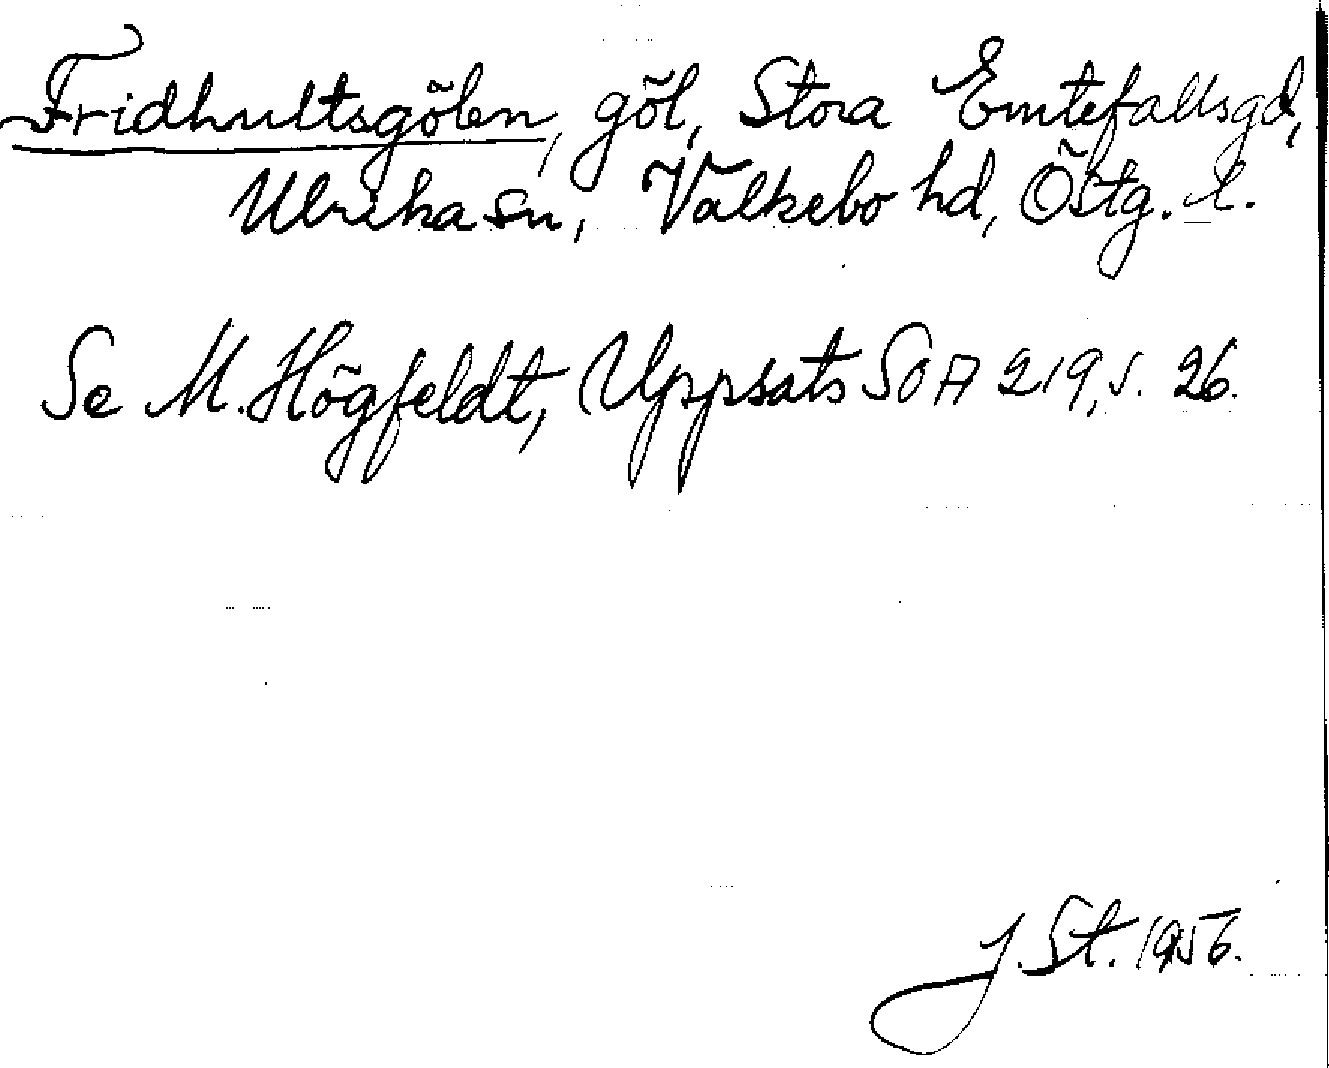 Fridhultsgölen, göl, Stora Emtefallsgd,
Ulrika sn, Valkebo hd, Östg. l.
Se M. Högfeldt, Uppsats SOA 219, s. 26.
J. St. 1956.